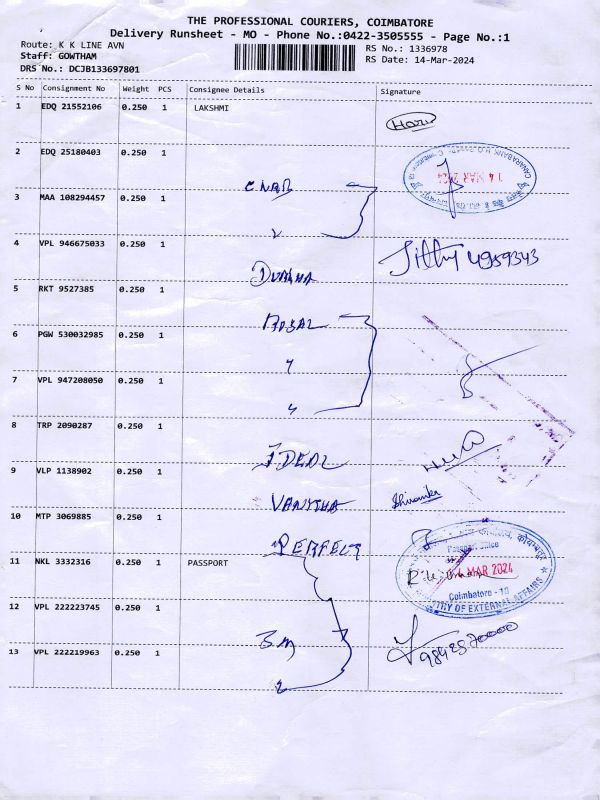 THE PROFESSIONAL COURIERS, COIMBATORE
Delivery Runsheet - MO - Phone No.:0422-3505555 - Page No.:1
Route: K K LINE AVN
RS No.: 1336978
Staff: GOWTHAM
RS Date: 14-Mar-2024
DRS No.: DCJB133697801
S No Consignment No Weight PCS Consignee Details Signature
1 EDQ 21552106 0.250 1 LAKSHMI
2 EDQ 25180403 0.250 1
14 MAR 2024
3 MAA 108294457 0.250 1
4 VPL 946675033 0.250 1
4959343
5 RKT 9527385 0.250 1
6 PGW 530032985 0.250 1
7 VPL 947208050 0.250 1
8 TRP 2090287 0.250 1
IDEAL
9 VLP 1138902 0.250 1
VANITHA
10 MTP 3069885 0.250 1
PERFECT
Passport Office
11 NKL 3332316 0.250 1 PASSPORT
14 MAR 2024
Coimbatore - 18
MINISTRY OF EXTERNAL AFFAIRS
12 VPL 222223745 0.250 1
13 VPL 222219963 0.250 1